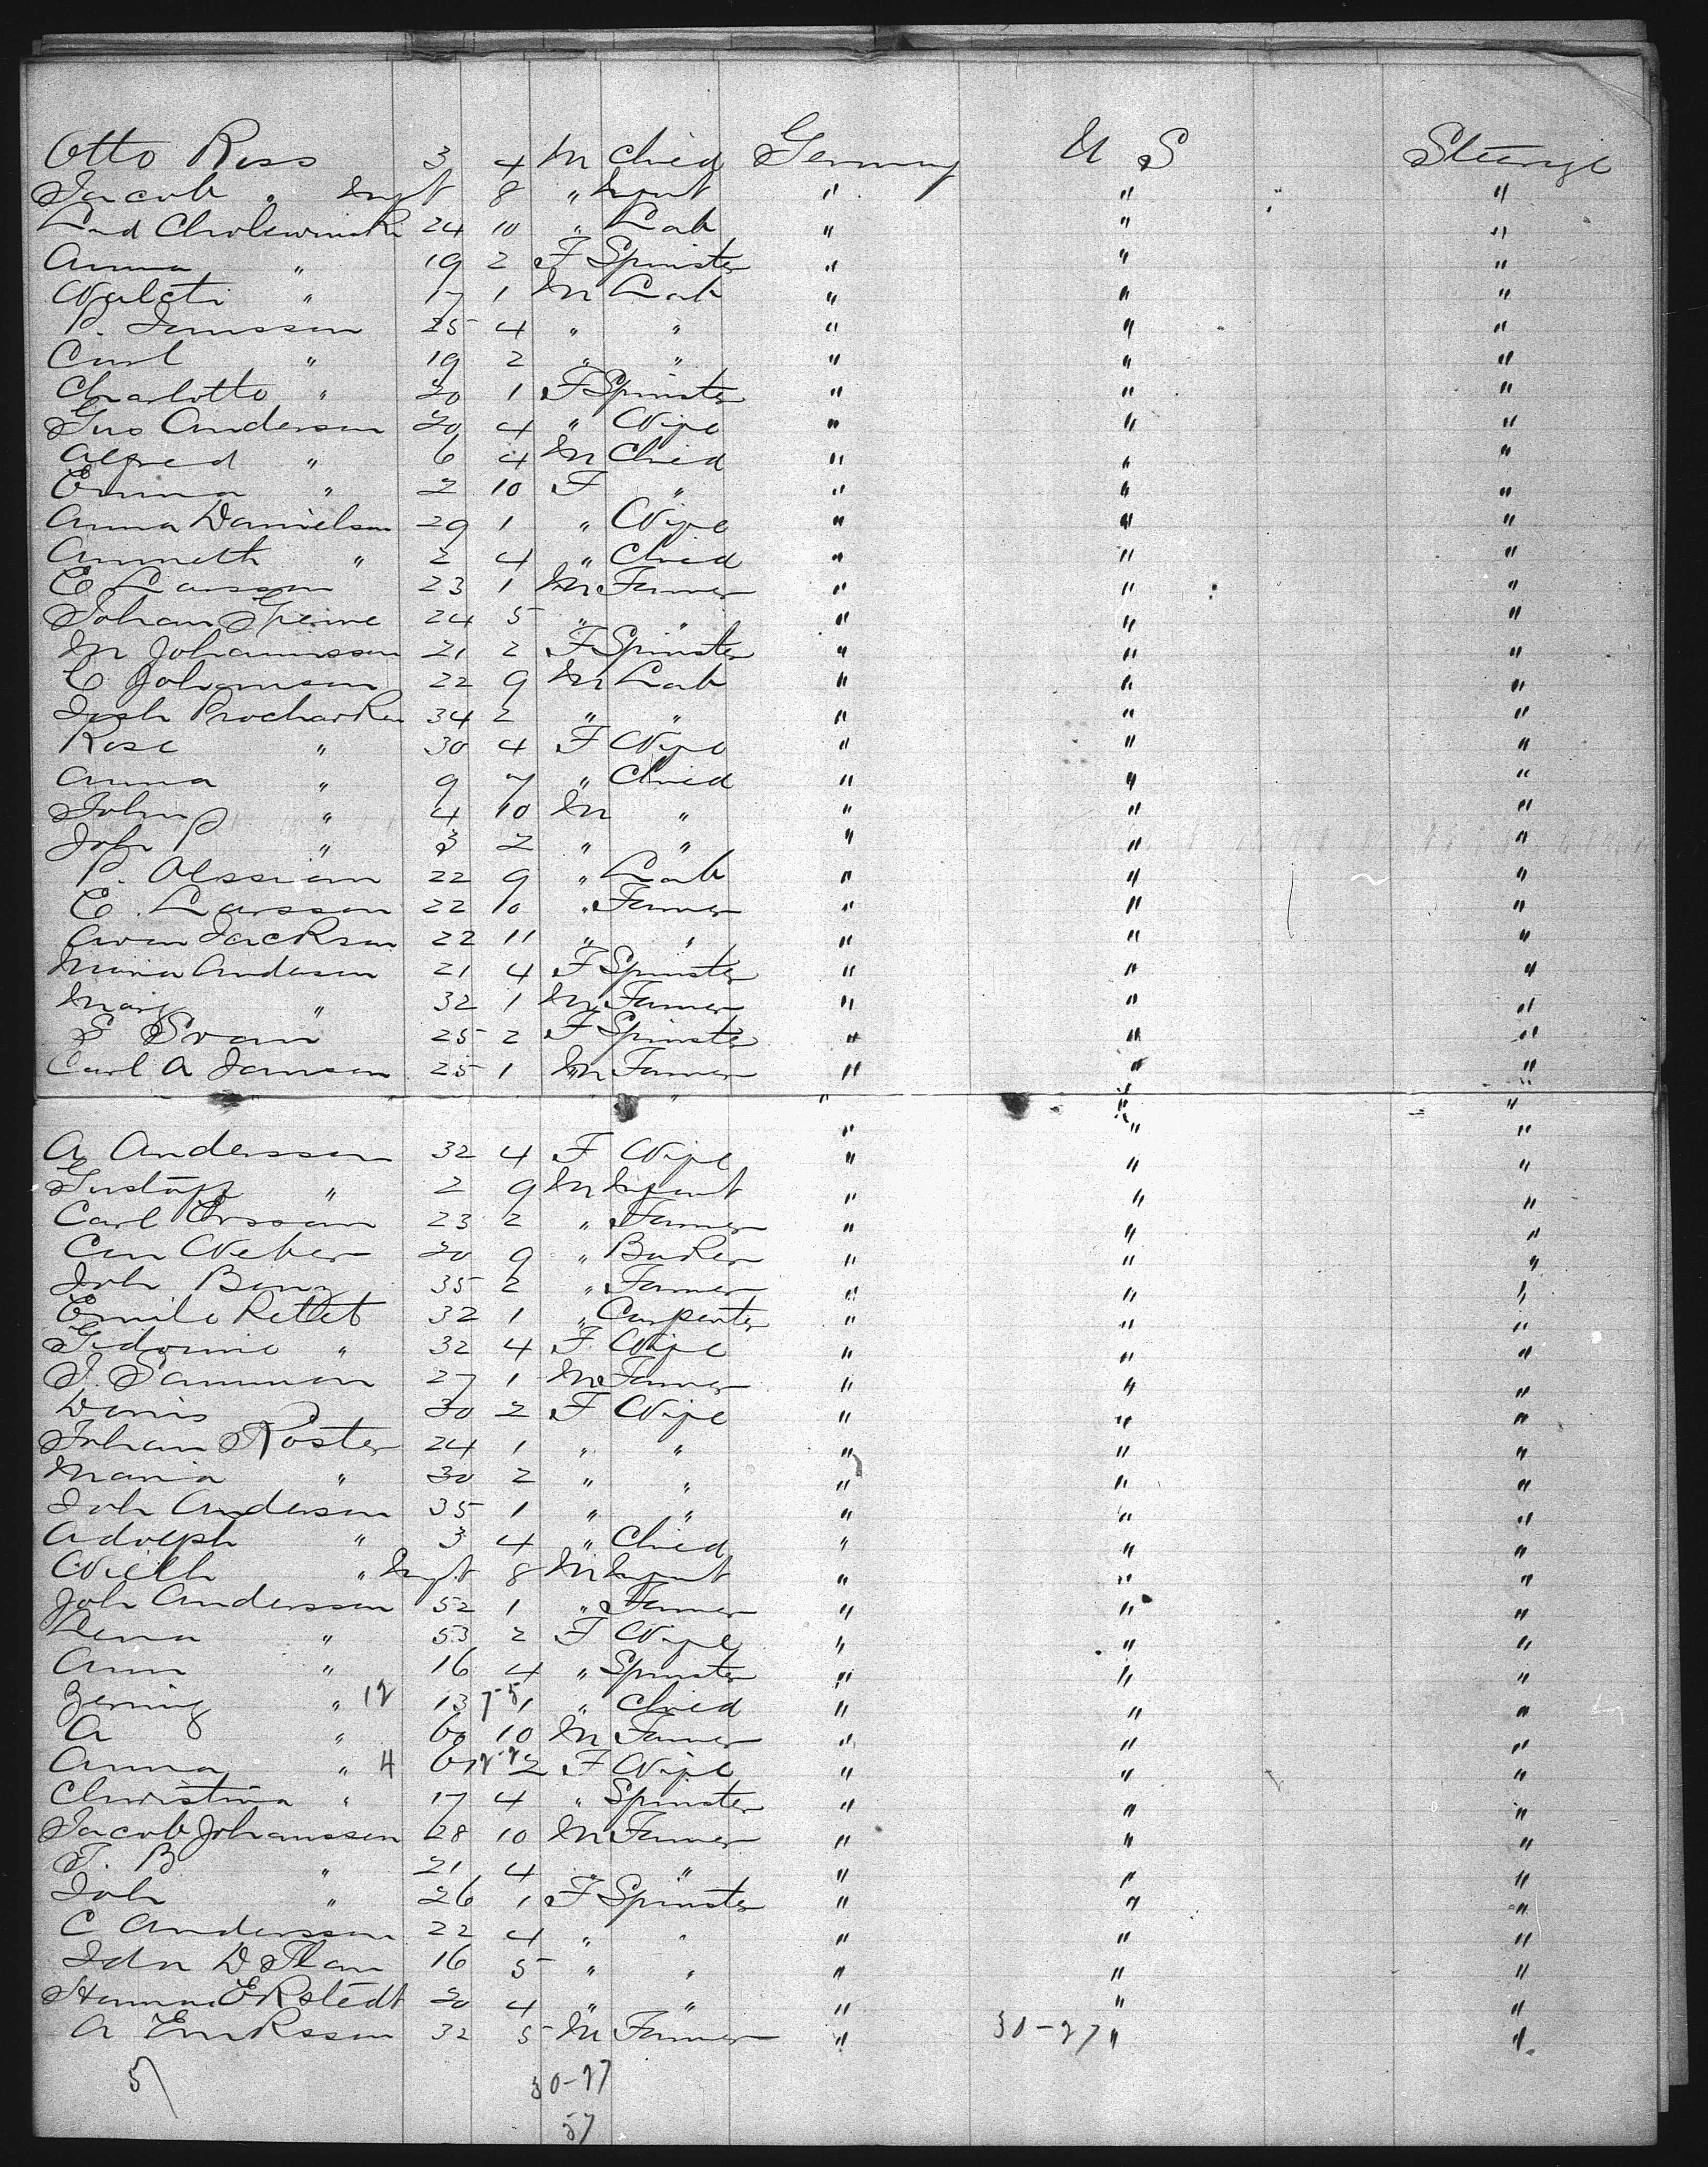 Otto Ross 3 4 M Child Germany U S Steerage
Jacob " Inft 8 " Infant " " "
Lud Cholewinski 24 10 " Lab " " "
Anna " 19 2 F Spinster " " "
" 17 1 M Lab " " "
P. Jansson 25 4 " " " " "
Carl " 19 2 " " " " "
Charlotte " 20 1 F Spinster " " "
Gus Anderson 30 4 " Wife " " "
Alfred " 6 4 M Child " " "
Emma " 2 10 F " " " "
Anna Danielson 29 1 " Wife " " "
Anneth " 2 4 " Child " " "
E Larsson 23 1 M Farmer " " "
Johan 24 5 " " " " "
M Johannsson 21 2 F Spinster " " "
C Johanson 22 9 M Lab " " "
Josh Prochaska 34 2 " " " " "
Rose " 30 4 F Wife " " "
Anna " 9 7 " Child " " "
John " 4 10 M " " " "
Joh P " 3 2 " " " " "
P. Olssian 22 9 " Lab " " "
E. Larsson 22 10 " Farmer " " "
Jackson 22 11 " " " " "
Maria Anderson 21 4 F Spinster " " "
" 32 1 M Farmer " " "
S Svan 25 2 F Spinster " " "
Carl A Janson 25 1 M Farmer " " "
A Andersson 32 4 F Wife " " "
Gustaf " 2 9 M Infant " " "
Carl Ersson 23 2 " Farmer " " "
Weber 20 9 " Baker " " "
Joh Benz 35 2 " Farmer " " "
Emile Rettet 32 1 " Carpenter " " "
Sidonie " 32 4 F Wife " " "
J. 27 1 M Farmer " " "
30 2 F Wife " " "
Johan Koster 24 1 " " " " "
Maria " 30 2 " " " " "
Joh Anderson 35 1 " " " " "
Adolph " 3 4 " Child " " "
Wilh " Inft 8 M Infant " " "
Joh Andersson 52 1 " Farmer " " "
Lena " 53 2 F Wife " " "
Ann " 16 4 " Spinster " " "
" 12 13 7-5 1 " Child " " "
A " 60 10 M Farmer " " "
Anna " 4 2 F Wife " " "
Christina " 17 4 " Spinster " " "
Jacob Johanssen 28 10 M Farmer " " "
J. B " 21 4 " " " " "
Joh " 26 1 F Spinster " " "
C Andersson 22 4 " " " " "
16 5 " " " " "
Ekstedt 20 4 " " " " "
A Eriksson 32 5 M Farmer " 30-27 " "
57 30-27
57